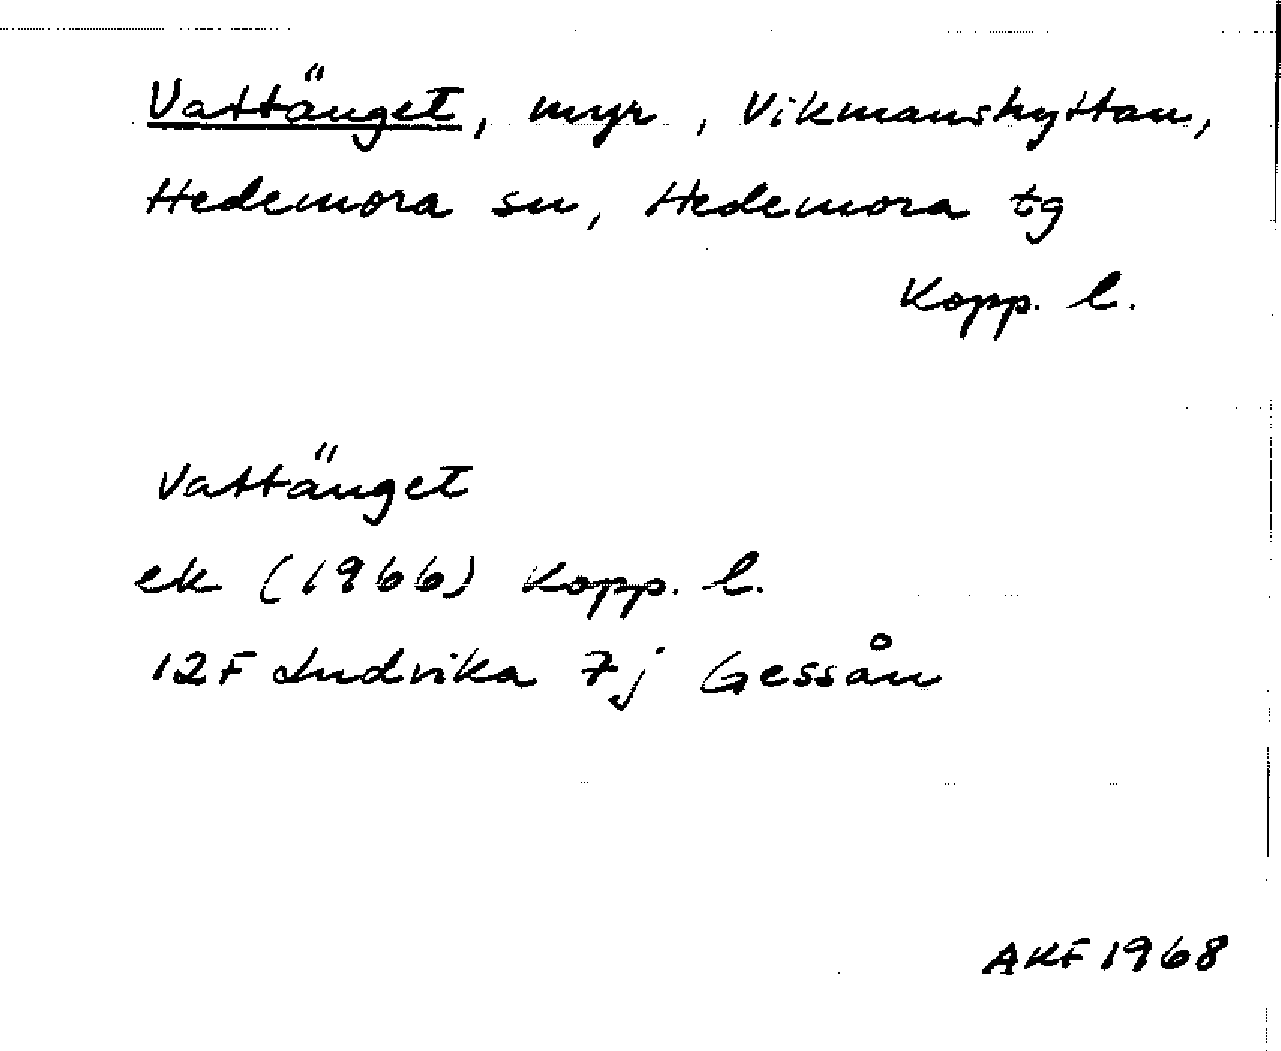 Vattänget, myr, Vikmanshyttan,
Hedemora sn, Hedemora tg
Kopp. l.
Vattänget
ek (1966) Kopp. l.
12F Ludvika 7j Gessån
AKF 1968